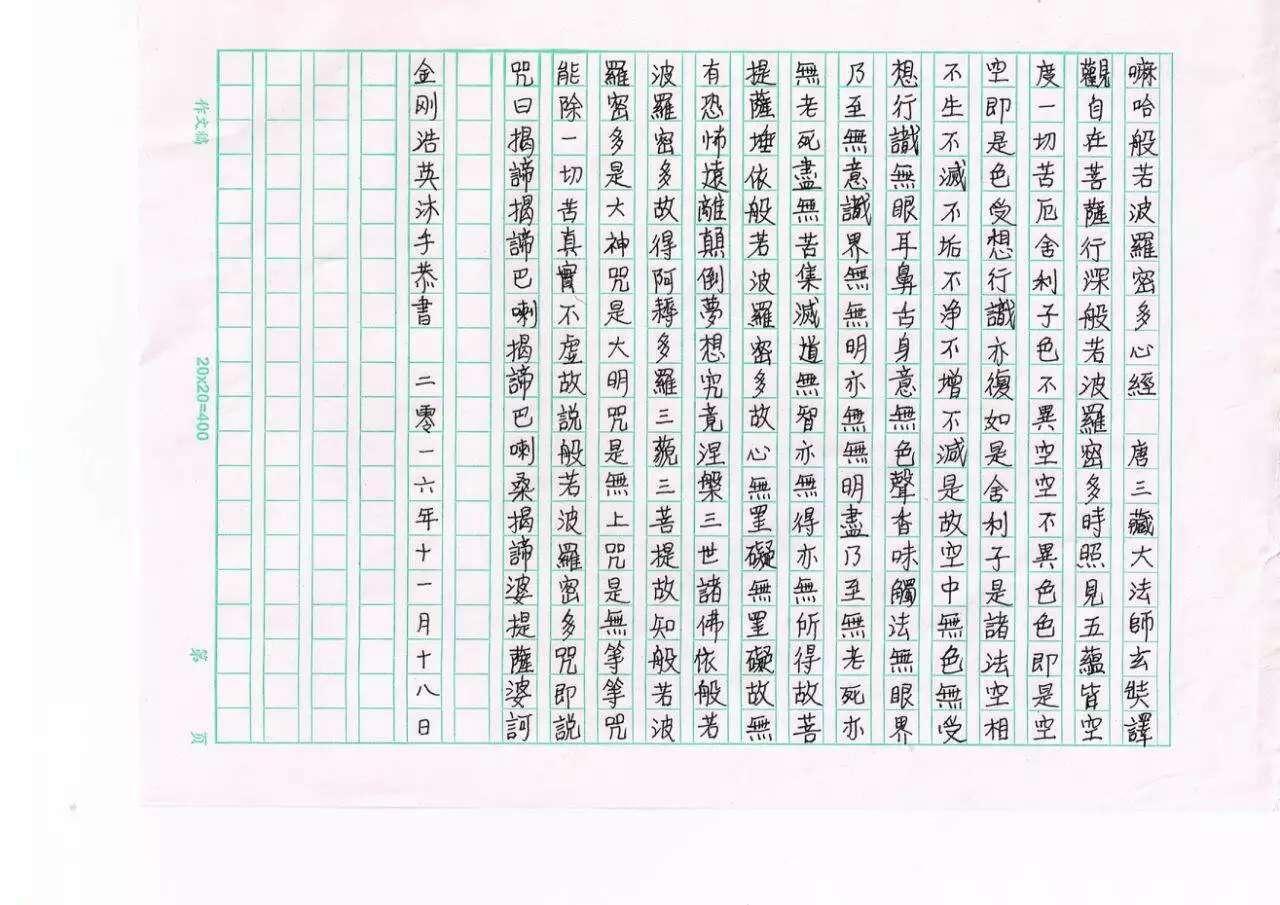 嘛哈般若波羅密多心經 唐三藏大法師玄奘譯
觀自在菩薩行深般若波羅密多時照見五蘊皆空
度一切苦厄舍利子色不異空空不異色色即是空
空即是色受想行識亦復如是舍利子是諸法空相
不生不滅不垢不淨不增不減是故空中無色無受
想行識無眼耳鼻舌身意無色聲香味觸法無眼界
乃至無意識界無無明亦無無明盡乃至無老死亦
無老死盡無苦集滅道無智亦無得亦無所得故菩
提薩埵依般若波羅密多故心無罣礙無罣礙故無
有恐怖遠離顛倒夢想究竟涅槃三世諸佛依般若
波羅密多故得阿耨多羅三藐三菩提故知般若波
羅密多是大神咒是大明咒是無上咒是無等等咒
能除一切苦真實不虛故說般若波羅密多咒即說
咒曰揭諦揭諦巴喇揭諦巴喇桑揭諦婆提薩婆訶
金刚浩英沐手恭書 二零一六年十一月十八日
作文稿 20x20=400 第 页